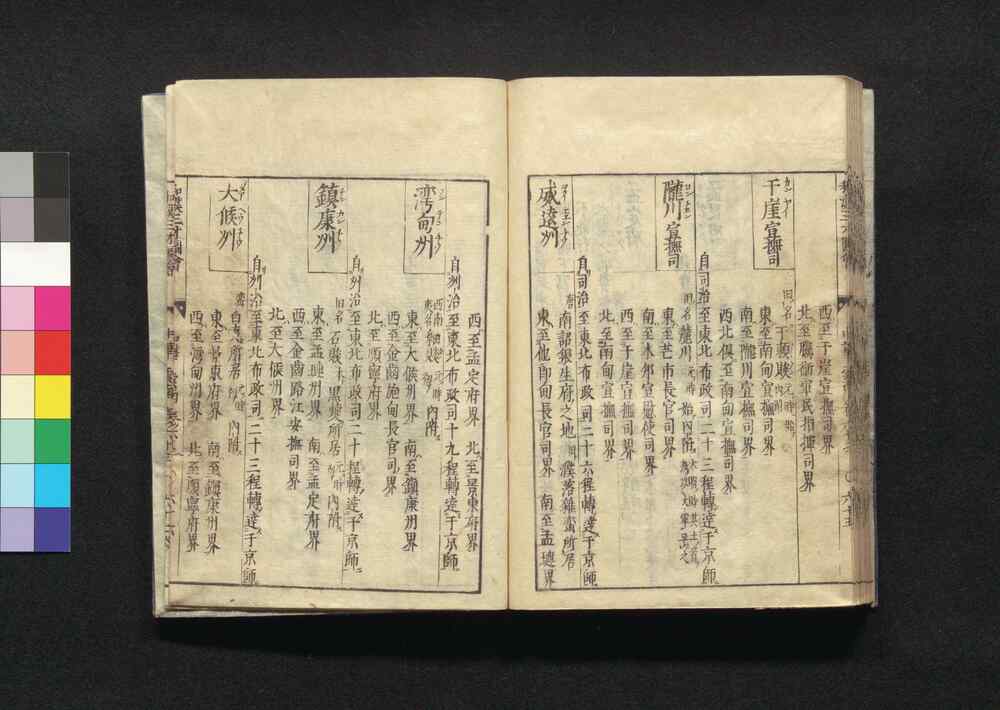 西至干崖宣撫司界
北至騰衝軍民指揮司界
干崖宣撫司
旧名干頼賧
東至南甸宣撫司界
南至隴川宣撫司界
西北俱至南甸宣撫司界
自司治至東北布政司二十三程轉達于京師
隴川宣撫司
旧名麓川元時始内附
東至芒市長官司界
南至木邦宣慰使司界
西至干崖宣撫司界
北至南甸宣撫司界
自司治至東北布政司二十六程轉達于京師
威遠州
南詔銀生府之地旧濮落雜蠻所居
東至他郎甸長官司界 南至孟璉界
西至孟定府界 北至景東府界
自州治至東北布政司十九程轉達于京師
湾甸州
西南細賧元時内附
東至大候州界 南至鎮康州界
西至金齒施甸長官司界
北至順寧府界
自州治至東北布政司二十程轉達于京師
鎮康州
旧名石賧木黒爨所居元時内附
東至孟璉州界 南至孟定府界
西至金齒路江安撫司界
北至大候州界
自州治至東北布政司二十三程轉達于京師
大候州
白夷所居元時内附
東至景東府界 南至鎮康州界
西至湾甸州界 北至順寧府界